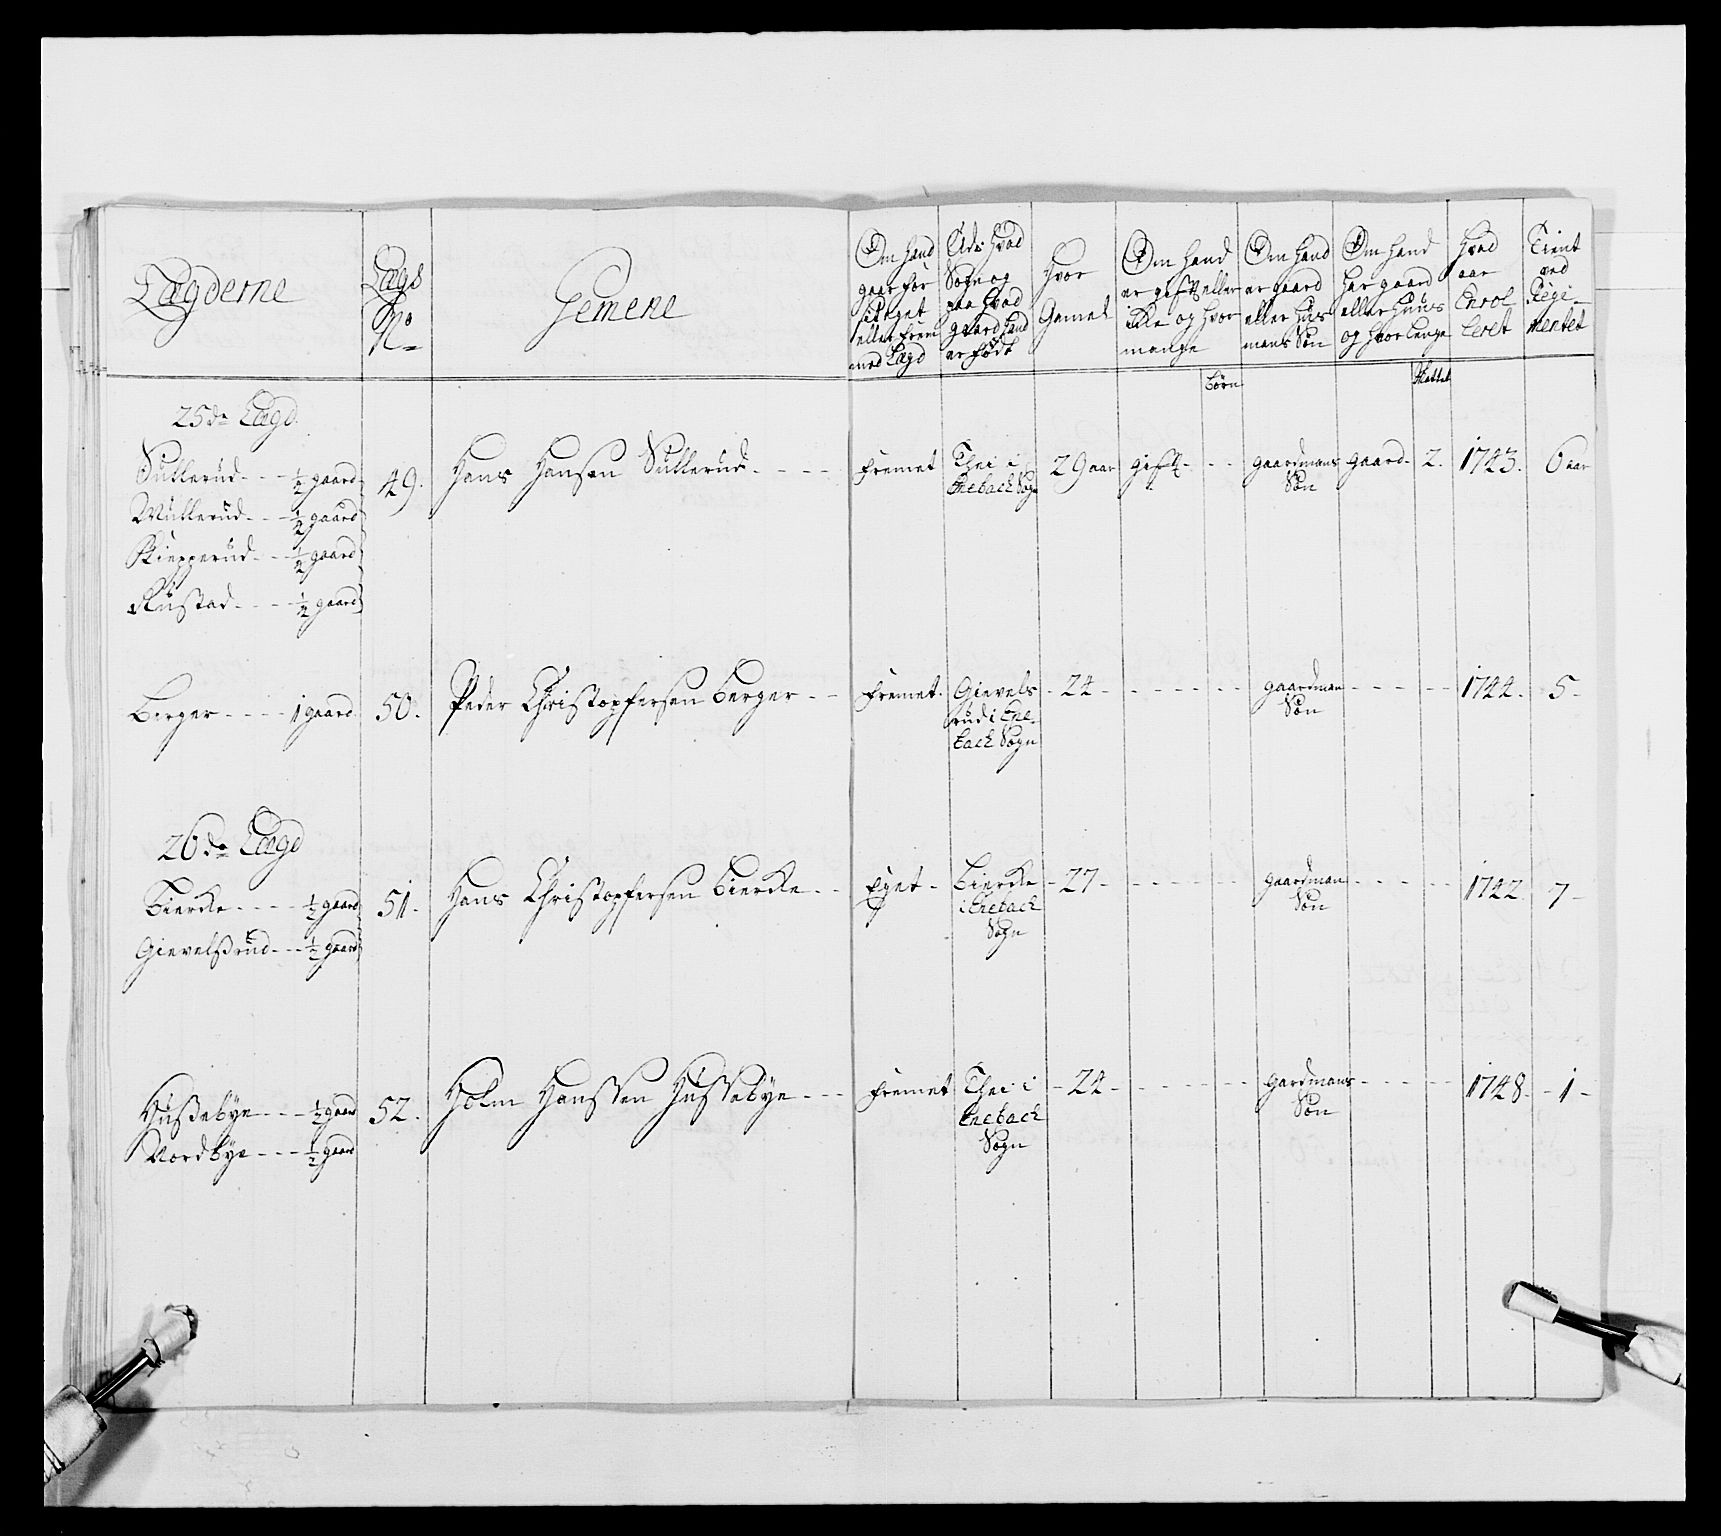 Lægderne
Lægs
No
Gemene
Om hand
gaar for
sit Eget
eller frem
med Lægd
Udi hvad
Sogn og
paa hvad
gaard hand
er født
Hvor
Gamel
Om hand
er gift eller
ikke og hvor
mange
Børn
Om hand
er gaard
eller huus
mans Søn
Om hand
har gaard
eller huus
og hvor lenge
Hvad
aar
Enrol
leret
Tient
ved
Regi-
mentet
25de Lægd
Sullerud - - - 1/2 gaard
Mullerud - - - 1/4 gaard
Kiepperud - - - 1/4 gaard
Rustad - - - - 1/4 gaard
49. Hans Hansen Sullerud - - - - fremet Thei i Enebach Sogn 29 aar gift - - - gaardmans Søn gaard - 2. 1743. 6 aar
Berger - - - - 1 gaard 50. Peder Christopfersen Berger - - fremet. Gievels rud i Ene- bach Sogn - 24 - - - - - - gaardman Søn - - - - - 1744. - 5 -
26de Lægd
Bierche - - - - 1/2 gaard
Gievelsrud - - - 1/2 gaard
51. Hans Christopfersen Bierche - - Eget - Bierche i Enebach Sogn - 27 - - - - - - gaardman Søn - - - - - 1742. 7 -
Hussebye - - - 1/2 gaard
Nordbye - - - 1/2 gaard
52. Holm Hanssen Hussebye - - - fremet Thei i Enebach Sogn - 24 - - - - - - gardmans Søn - - - - - 1748. - 1 -